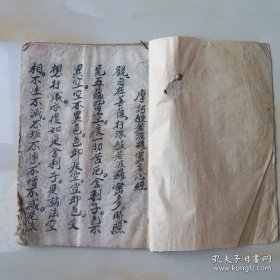 摩訶般若波羅密多心经
觀自在菩薩行深般若波羅密多時照
見五蘊皆空度一切苦厄舍利子色不
異空空不異色色即是空空即是色受
想行識亦復如是舍利子是諸法空
相不生不滅不垢不净不增不减是故
孔夫子旧书网